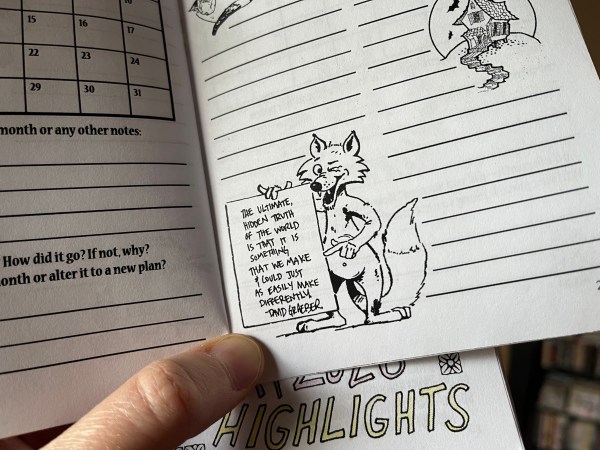 15 16 17
22 23 24
29 30 31
month or any other notes:
How did it go? If not, why?
onth or alter it to a new plan?
THE ULTIMATE,
HIDDEN TRUTH
OF THE WORLD
IS THAT IT IS
SOMETHING
THAT WE MAKE
& COULD JUST
AS EASILY MAKE
DIFFERENTLY.
-DAVID GRAEBER
HIGHLIGHTS